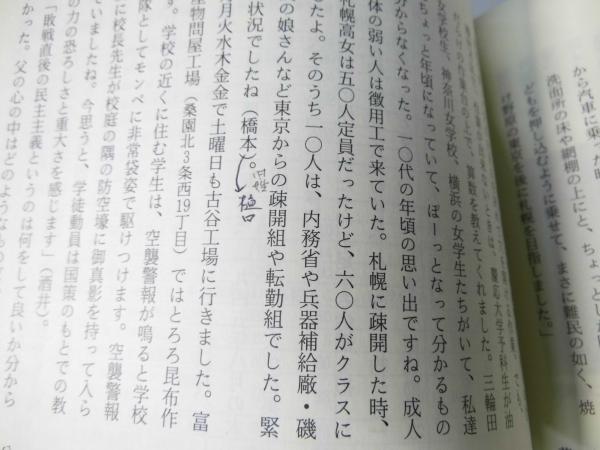 から汽車に乗
洗面所の床や網棚の上にと、ちょっとし
どもを押し込むように乗せて、まさに難民の如く、焼
け野原の東京を後に札幌を目指しました。」
算数を教えてくれました。三輪田
女学校生、神奈川女学校、横浜の女学生たちがいて、私達
ちょっと年頃になっていて、ぽーっとなって分かるもの
分からなくなった。一〇代の年頃の思い出ですね。成人
体の弱い人は徴用工で来ていた。札幌に疎開した時、
札幌高女は五〇人定員だったけど、六〇人がクラスに
たよ。そのうち一〇人は、内務省や兵器補給廠・磯
の娘さんなど東京からの疎開組や転勤組でした。緊
状況でしたね（橋本）。
旧姓
樋口
月火水木金金で土曜日も古谷工場に行きました。富
産物問屋工場（桑園北3条西19丁目）ではとろろ昆布作
す。学校の近くに住む学生は、空襲警報が鳴ると学校
隊としてモンペに非常袋姿で駆けつけます。空襲警報
に校長先生が校庭の隅の防空壕に御真影を持って入ら
ていましたね。今思うと、学徒動員は国策のもとでの教
の力の恐ろしさと重大さを感じます」（酒井）。
「敗戦直後の民主主義というのは何をして良いか分から
かった。父の心の中はどのようなもの